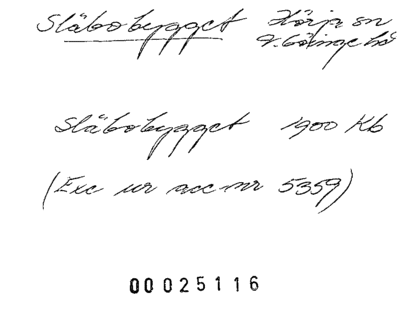 Släbobygget Hörja sn
V. Göinge hd
Släbobygget 1900 Kb
(Exc ur acc nr 5359)
00025116